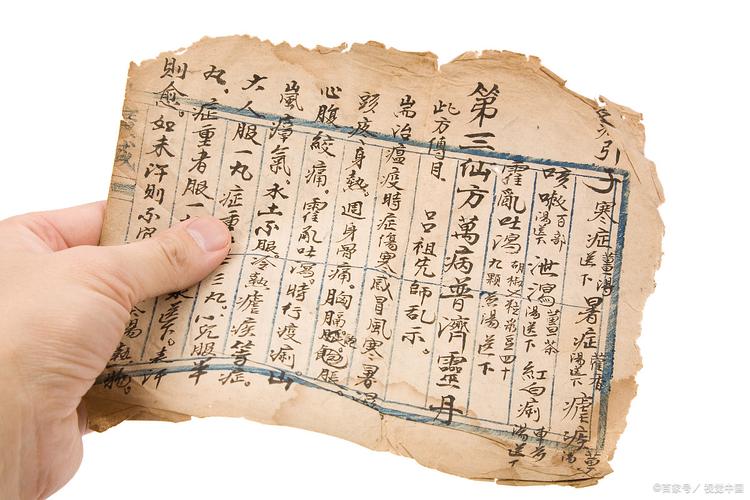 引子寒症薑湯送下暑症藿香湯送下瘧疾薑湯
咳嗽百部湯送下泄瀉薑茶湯送下紅白痢車前湯送下
霍亂吐瀉胡椒粒菉豆四十九顆煎湯送下
第三仙方萬病普濟靈丹
此方傳自 呂祖先師乩示。
耑治瘟疫時症傷寒感冒風寒暑濕
頭疼身熱。週身骨痛。胸膈飽脹。
心腹絞痛。霍乱吐瀉。時行疫痢。山
嵐瘴氣。水土不服。冷熱瘧疾等症。
大人服一丸症重三丸。小兒服半
丸、症重者服一水送下。蓋汗
則愈。如未汗則不宜熱物。
©百家号／视觉中国